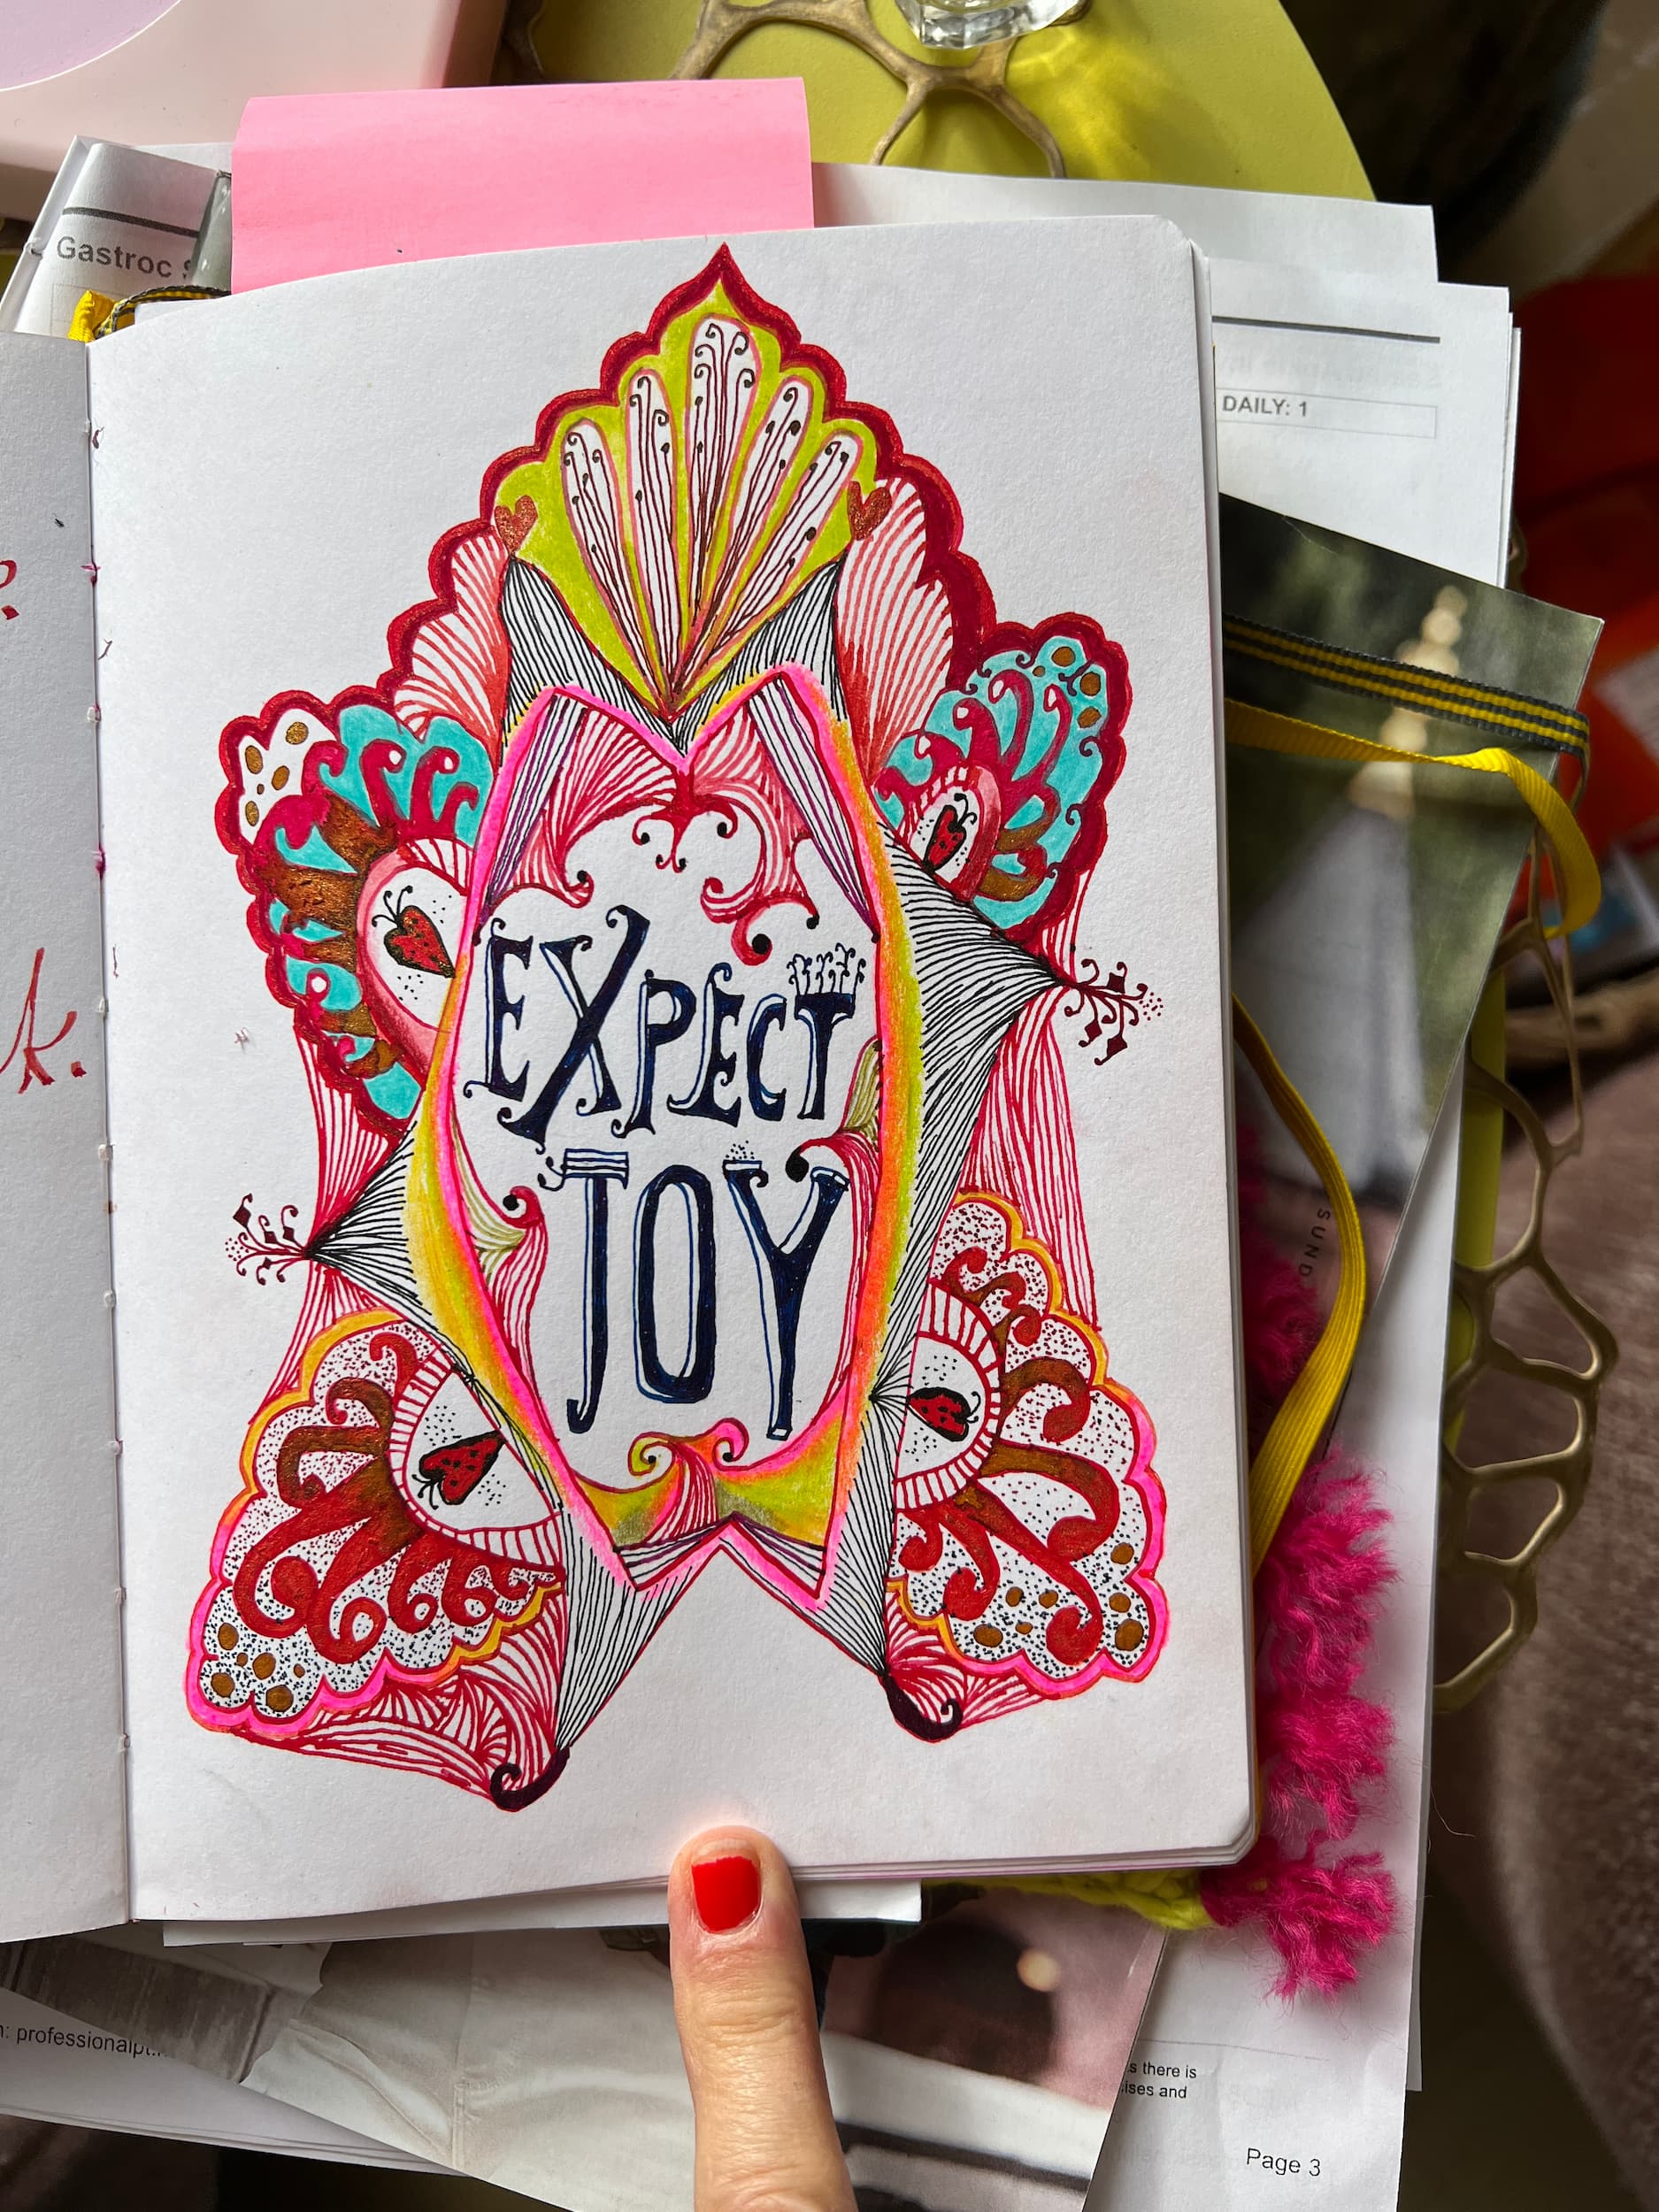 Gastroc
DAILY: 1
EXPECT
JOY
SUND
professionalpt
s there is
ises and
Page 3